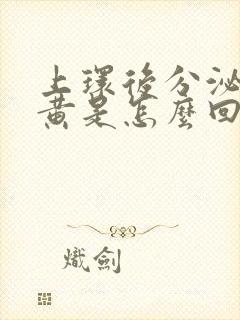 上環後分泌
黃是怎麼回
熾劍